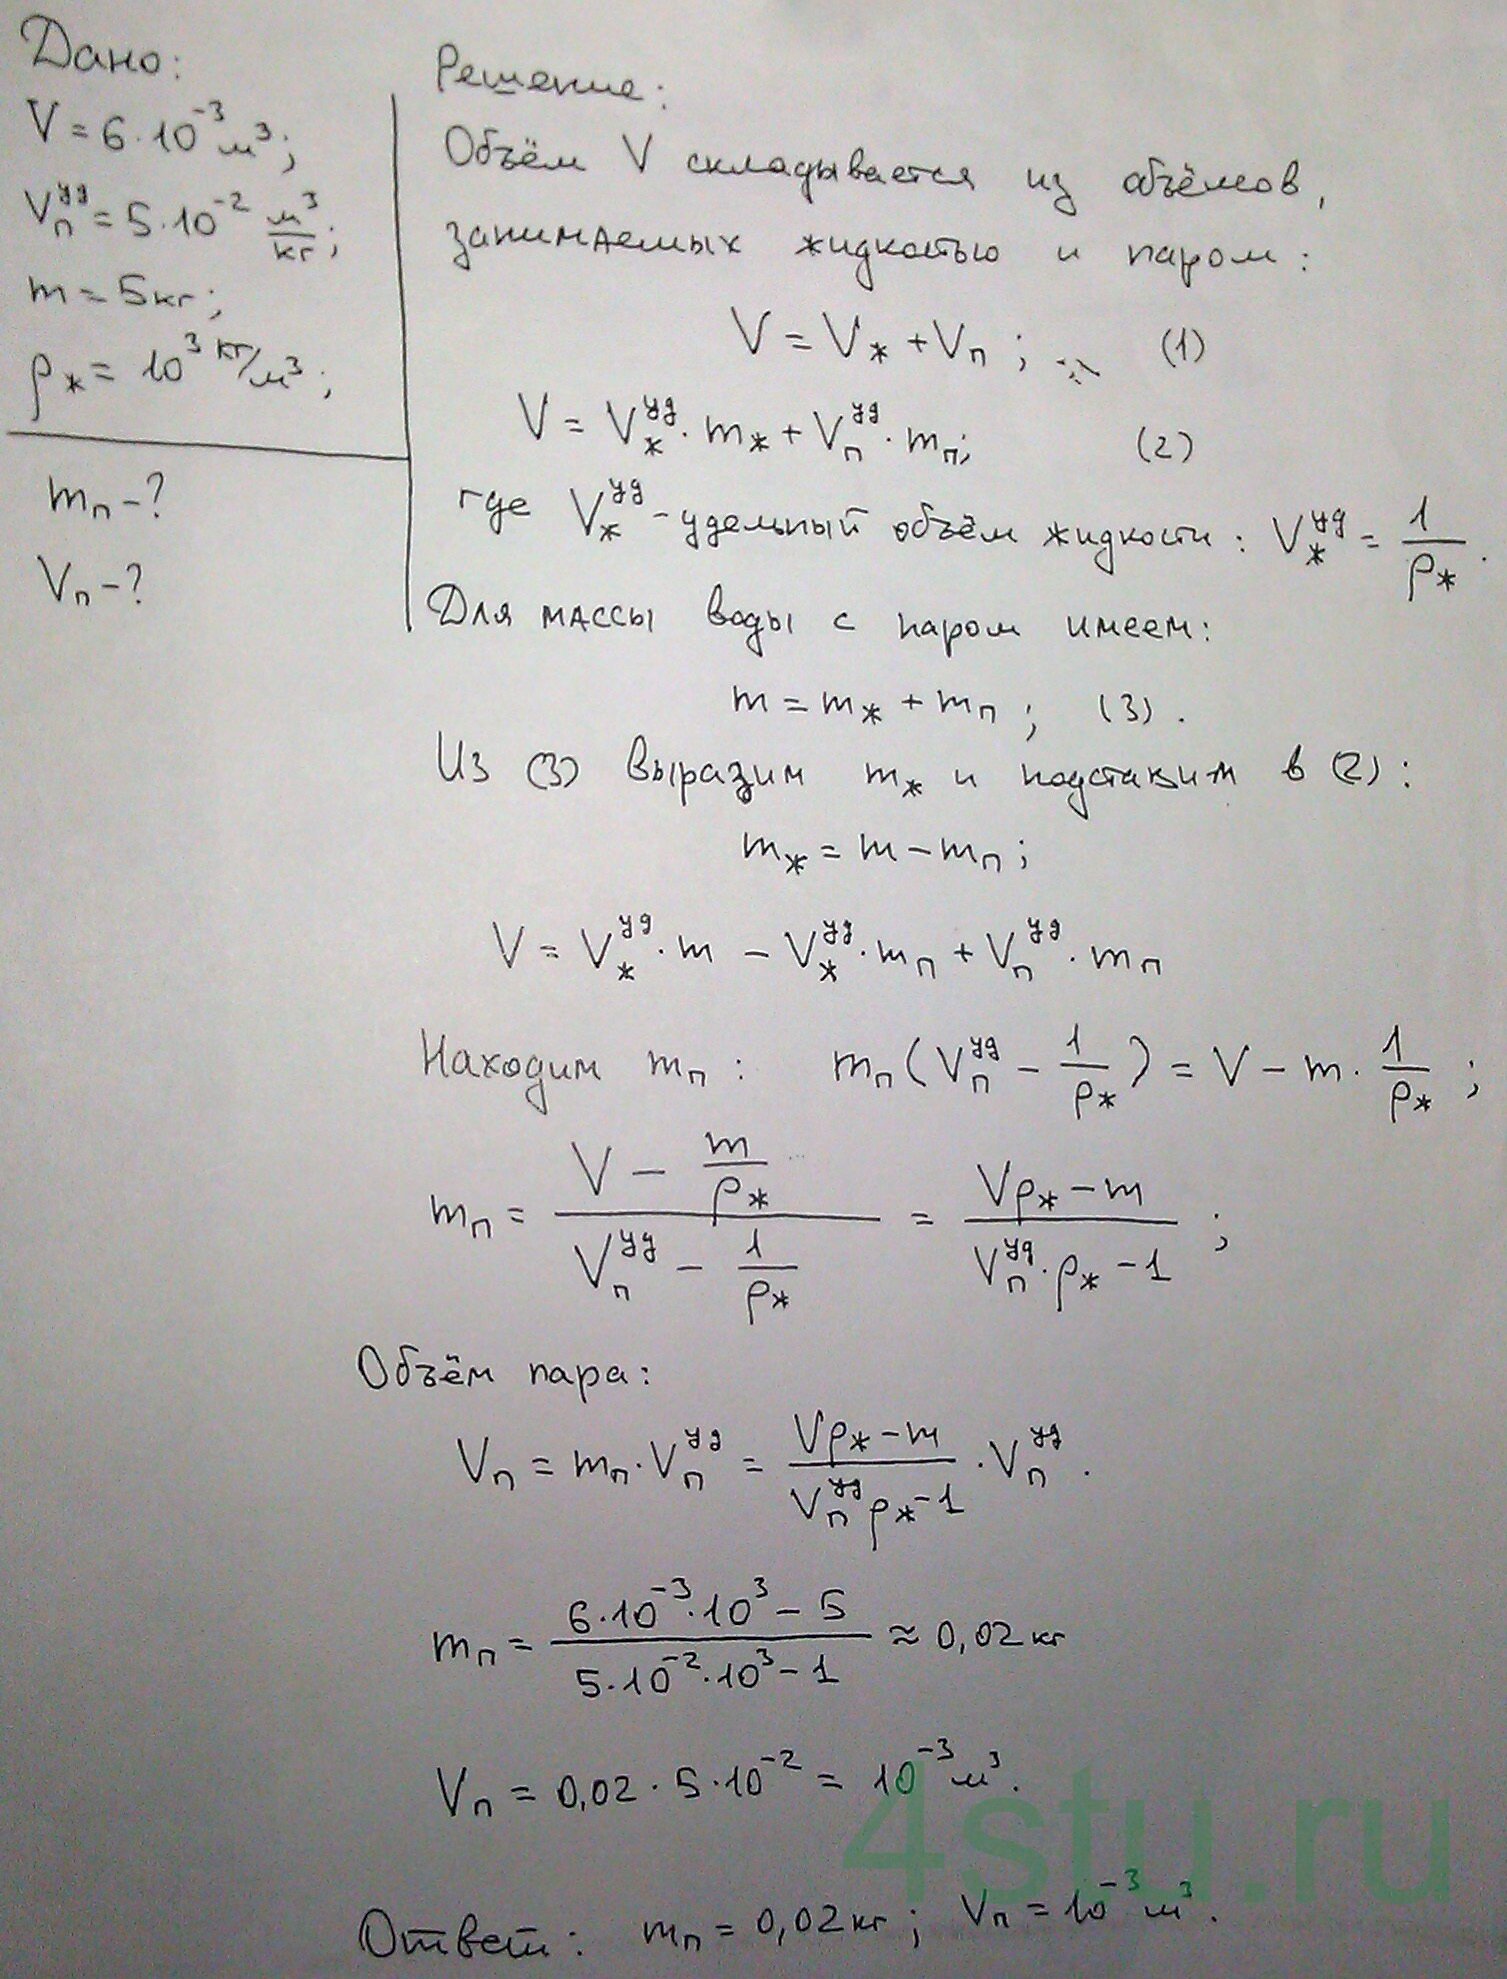 Дано:
V = 6·10⁻³ м³;
Vп^уд = 5·10⁻² м³/кг;
m = 5кг;
ρж = 10³ кг/м³;
mп – ?
Vп – ?
Решение:
Объём V складывается из объёмов,
занимаемых жидкостью и паром:
V = Vж + Vп ; (1)
V = Vж^уд · mж + Vп^уд · mп; (2)
где Vж^уд – удельный объём жидкости: Vж^уд = 1/ρж .
Для массы воды с паром имеем:
m = mж + mп ; (3).
Из (3) выразим mж и подставим в (2):
mж = m – mп ;
V = Vж^уд · m – Vж^уд · mп + Vп^уд · mп
Находим mп : mп (Vп^уд – 1/ρж) = V – m · 1/ρж ;
mп = (V – m/ρж)/(Vп^уд – 1/ρж) = (Vρж – m)/(Vп^уд · ρж – 1) ;
Объём пара:
Vп = mп · Vп^уд = (Vρж – m)/(Vп^уд ρж – 1) · Vп^уд .
mп = (6·10⁻³·10³ – 5)/(5·10⁻²·10³ – 1) ≈ 0,02 кг
Vп = 0,02 · 5·10⁻² = 10⁻³ м³.
4stu.ru
Ответ: mп = 0,02 кг ; Vп = 10⁻³ м³.